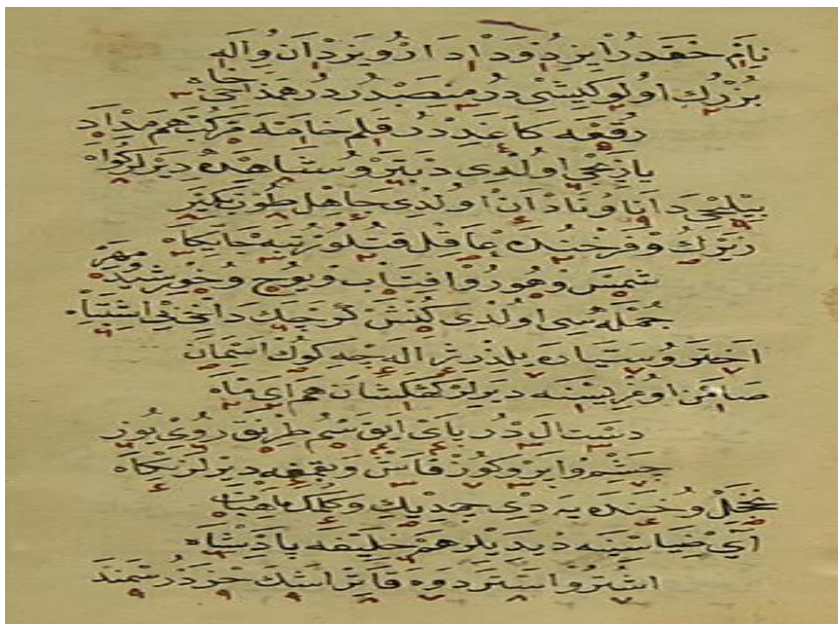 نام حقدر ایزد و داددار و یزدان و اله
بزرك اولو كیشی در منصبدر در همداخی جاه
رقعه كاغددر قلم خامه مركب هم مداد
یازیجی اولدی دبیر و شاهده دیرلر كواه
بیلیجی دانا و نادان اولدی جاهل طوز
زیرك و فرخنده عاقل قتلو رتبه جایكاه
شمس و هور و افتاب و یوح و خورشید و مهر
جمله سی اولدی كنش كرچك داخی بی اشتباه
اختر و ستاره یلدزدر اله جه كوك اسمان
صامن اوغریسنه دیرلر كهكشان هم ای ماه
دست ال در پای ایق سم طریق روی یوز
چشم و ابرو كوز قاش و بقمغه دیرلر نكاه
و خنده یه دی جمدیك و كلمك
ای ضیاسینه دیدیلر هم خلیفه پادشاه
اشتر و استر دوه قاتر اشك خر در سمند